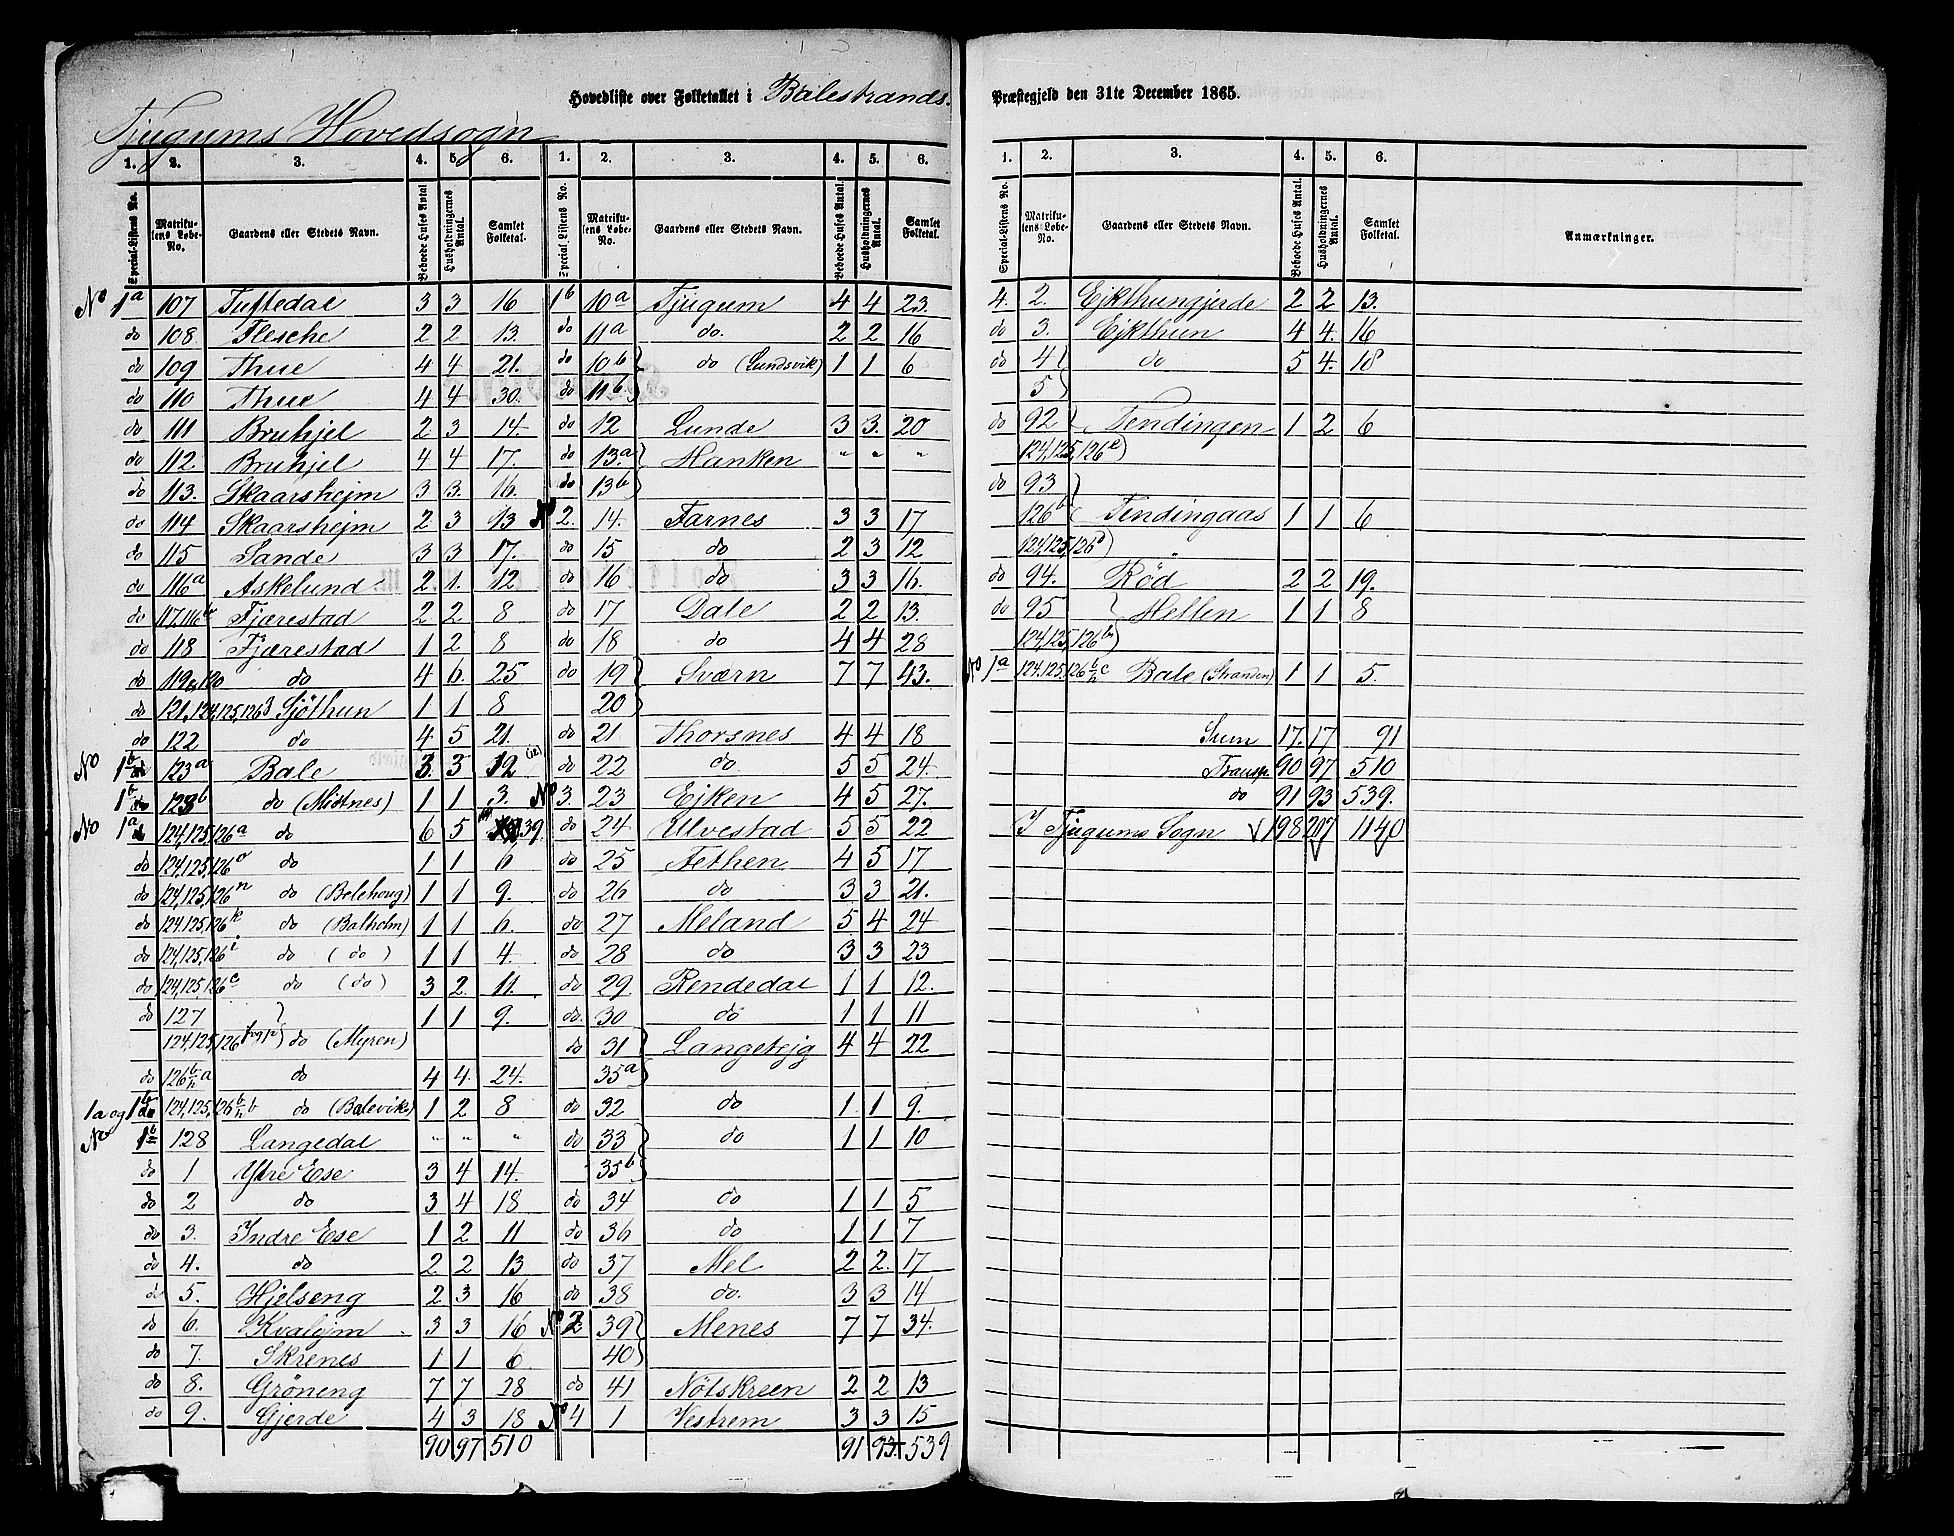 Hovedliste over Folketallet i Balestrands Præstegjeld den 31te December 1865.
Tjugums Hovedsogn
1. 2. 3. 4. 5. 6. 1. 2. 3. 4. 5. 6.
Special-Listens No. Matrikulens Løbe-No. Gaardens eller Stedets Navn. Beboede Huses Antal Husholdningernes Antal. Samlet Folketal. Special Listens No. Matrikulens Løbe-No. Gaardens eller Stedets Navn. Beboede Huses Antal. Husholdningernes Antal. Samlet Folketal.
No 1a 107 Tuftedal 3 3 16 1b 10a Tjugum 4 4 23.
do 108. Flesche 2 2 13. do 11a do. 2 2 16
do 109 Thue 4 4 21. do 10b do (Lundsvik) 1 1 6
do 110 Thue 4 4 30. do 11b.
do 111 Bruhjel 2 3 14. do 12 Lunde 3 3. 20
do 112. Bruhjel 4 4 17. do 13.a Hanken " " "
do 113. Skaarshejm 3 3. 16. do 13b
do 114 Skaarshejm 2. 3 13 No 2. 14. Farnes 3 3 17
do 115 Sande 3 3 17. do 15 do 2 3 12
do 116a Askelund 2. 1. 12 do 16 do 3 3 16.
do 117, 116b Fjærestad 2 2 8 do 17 Dale 2 2 13.
do 118 Fjærestad 1 2 8 do 18 do 4 4 28
do 119 120 do 4 6. 25 do 19 Sværn 7 7 43.
do 121, 124,125,126 Sjöthun 1 1 8 20
do 122 do 4 5 21. do 21 Thorsnes 4 4 18
No 1b 123a Bale 3. 3 12 (12) do 22 do. 5 5 24.
1b 123b do (Midtnes) 1 1 3. No 3. 23 Ejken 4 5 27.
No 1a 124,125,126a do 6 5 39. do 24 Ulvestad 5 5 22
do 124,125,126o do 1 1 6 do 25 Fethen 4 5 17
do 124,125,126n do (Balehoug) 1 1 9. do 26 do 3 3 21.
do 124,125,126k do (Balholm) 1 1 6. do 27 Meland 5 4 24
do 124,125,126i do (do) 1 1 4 do 28 do 3 3 23
do 124,125,126c do (do) 3 2. 11. do 29 Rendedal 1 1 12.
do 127 1 1 9. do. 30 do 1 1 11
124,125,126 do (Myren) do 31 Langetejg 4 4 22
do 126b/n a do 4 4. 24. 35a
1a og 1b 124,125,126b/n b do (Balevik) 1 2 8 do 32 do 1. 1 9.
No 1b 128 Langedal " " " do 33 do 1 1 10
do 1 Ytre Ese 3 4 14. 35b
do 2 do 3 4 18 do 34 do 1 1 5
do 3. Indre Ese 1 2 11 do 36 do 1 1 7
do 4. do 2 2 13 do 37 Mel 2 2. 17
do 5. Hjelseng 2 3 16 do 38 do. 3 3 14
do 6. Kvalejm 3 3 16 No 2 39 Menes 7 7 34.
do 7. Skrenes 1 1 6. 40
do 8. Gröneng 7 7 28 do 41 Nötskreen 2 2 13
do 9. Gjerde 4 3 18 No 4 1 Vestrem 3 3 15
90 97 510 91 93. 539
1. 2. 3. 4. 5. 6.
Special-Listens No. Matrikulens Løbe-No. Gaardens eller Stedets Navn. Beboede Huses Antal. Husholdningernes Antal. Samlet Folketal. Anmærkninger.
4. 2. Ejkthungjerde 2 2 13.
do 3. Ejkthun 4 4. 16
do 4 do 5 4. 18
5
do 92 Tendingen 1 2 6
124,125,126e
do 93
126b Tendingaas 1 1 6
124,125,126d
do 94. Röd 2 2 19.
do 95 Hellen 1 1 8
124,125,126m
No 1a 124,125,126b/n c Bale (Stranden) 1 1 5.
Sum 17. 17 91
Transp. 90 97 510
do 91 93 539.
I Tjugums Sogn 198 207 1140